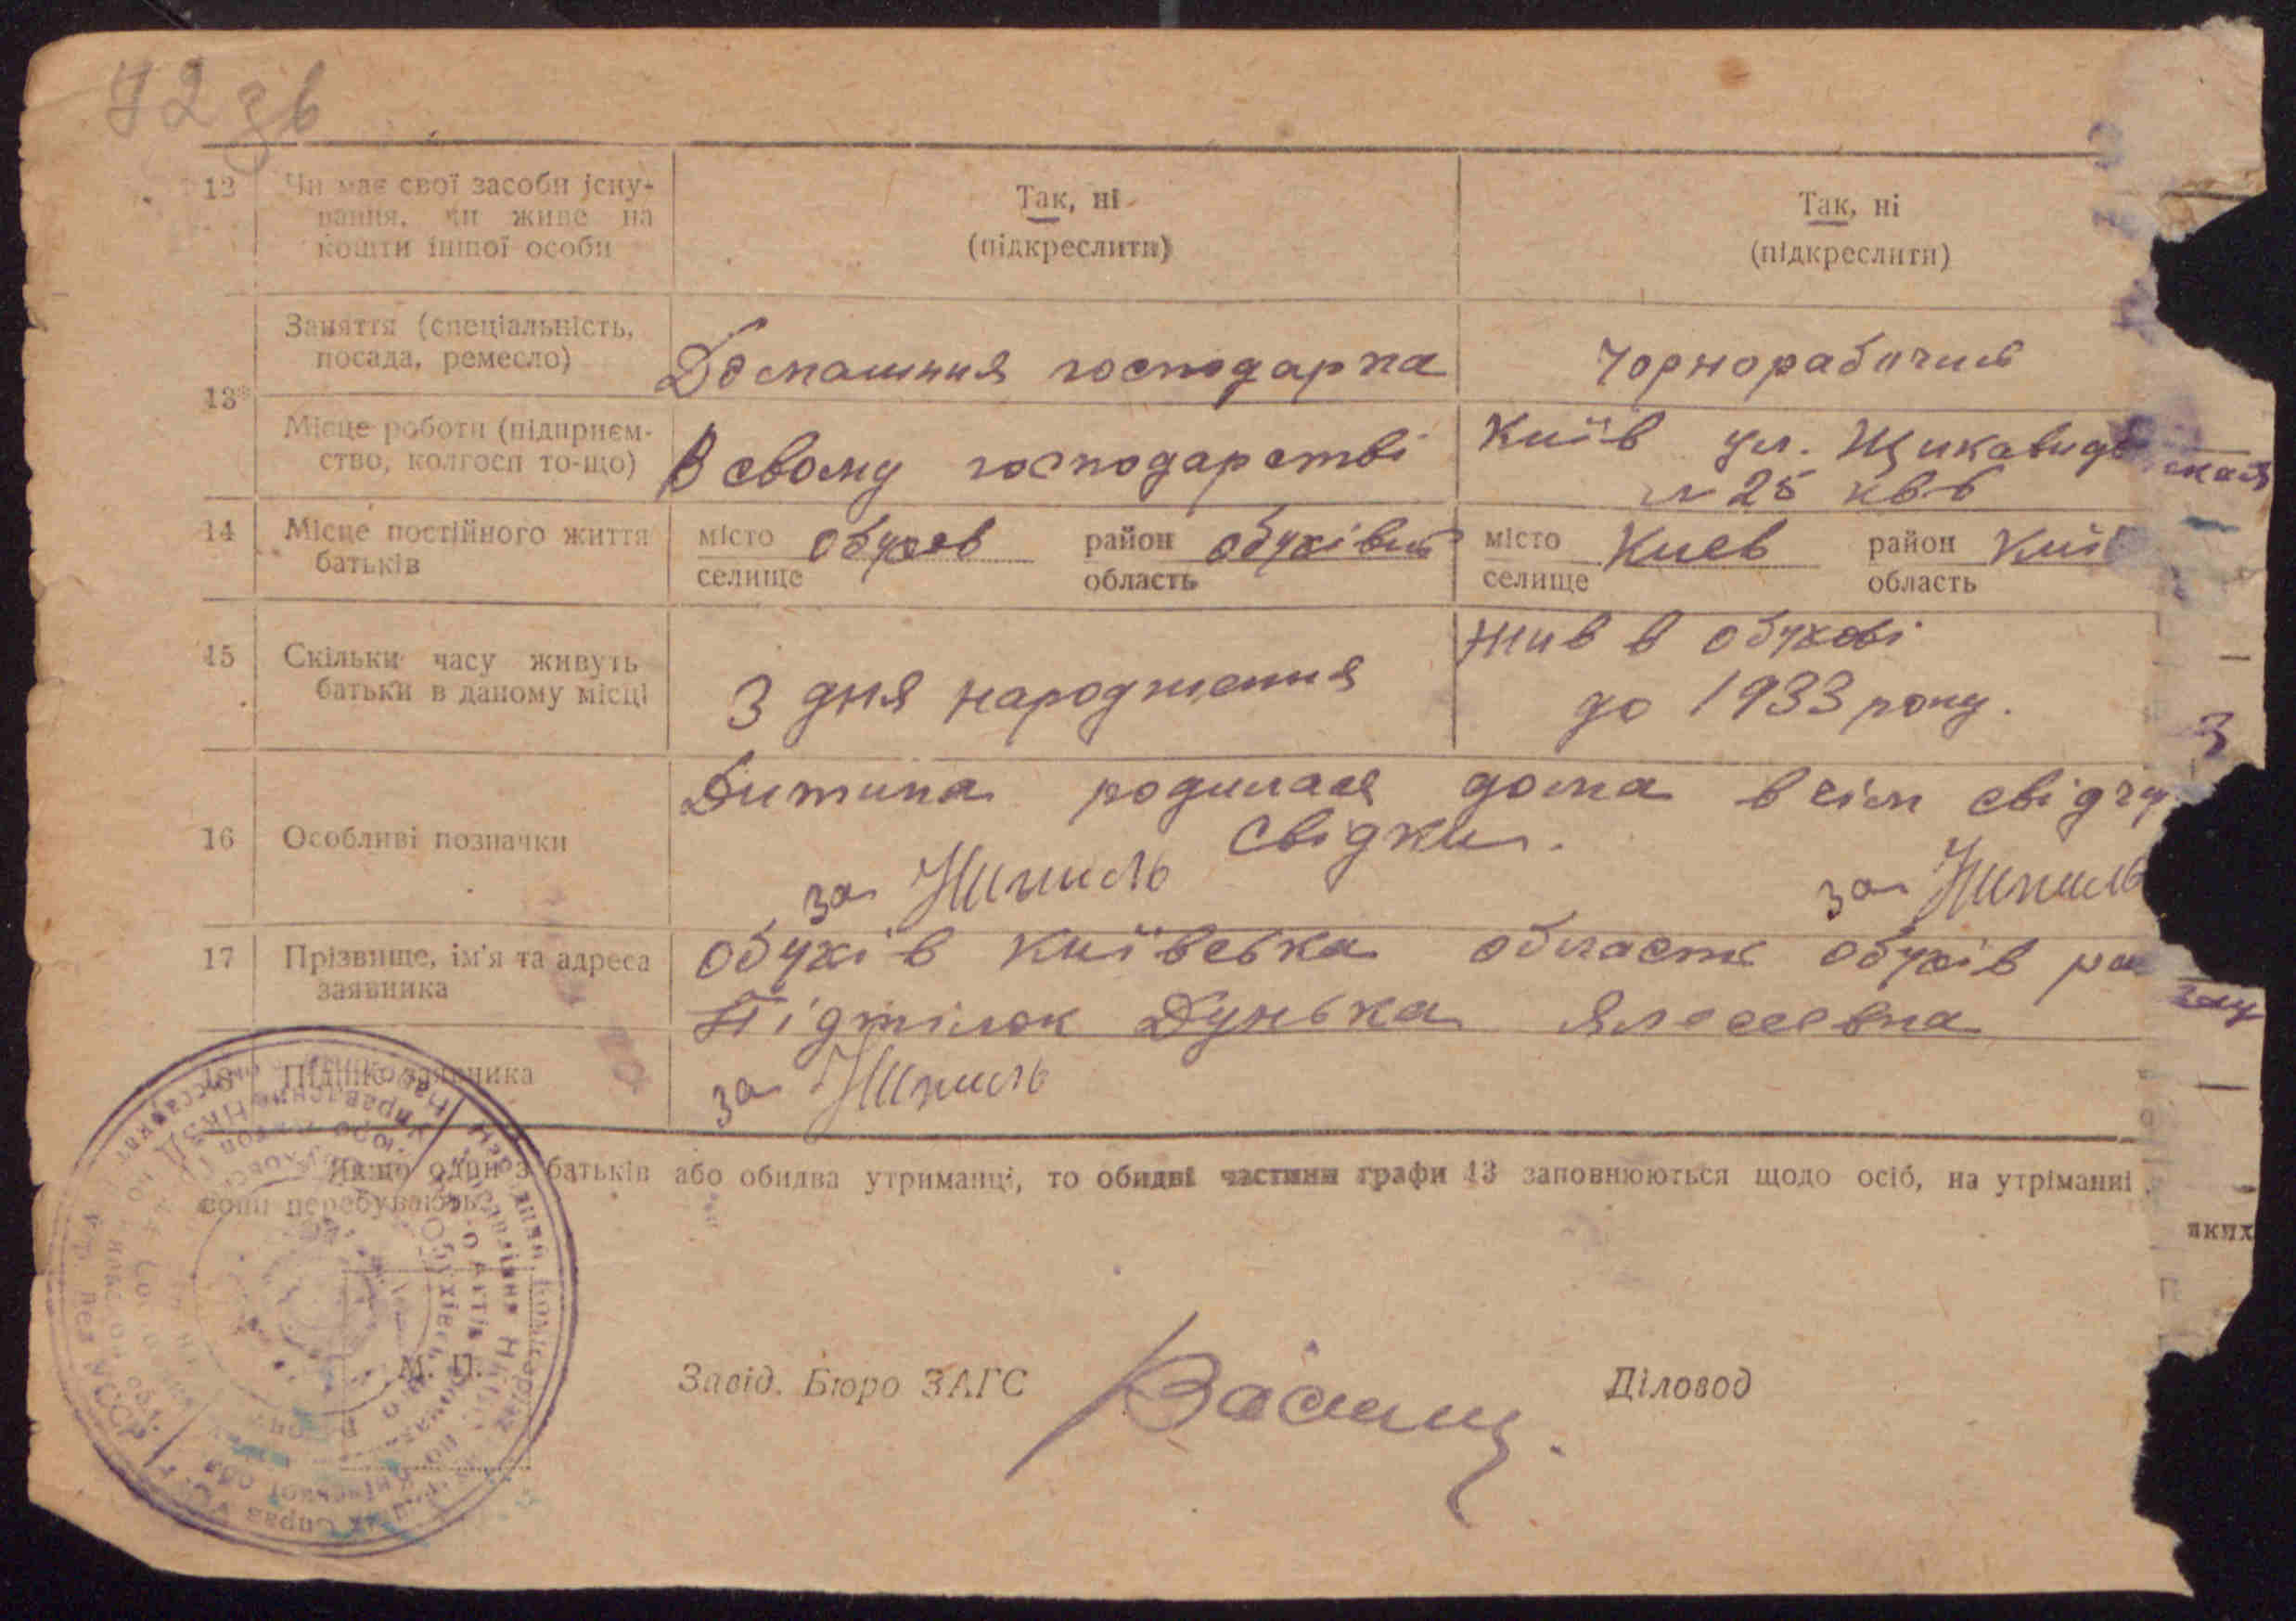 72 зв
12 Чи має свої засоби існу-
вання, чи живе на
кошти іншої особи
Так, ні
(підкреслити)
Так, ні
(підкреслити)
13*
Заняття (спеціальність,
посада, ремесло)
Домашння господарка
Чорнорабочий
Місце роботи (підприєм-
ство, колгосп то-що)
В свому господарстві
Київ ул.
№ 25 кв 6
14 Місце постійного життя
батьків
місто Обухов район Обухівський
селище область
місто Киев район Київ
селище область
15 Скільки часу живуть
батьки в даному місці
З дня народження
жив в Обухові
до 1933 року.
16 Особливі позначки
Дитина родилася дома в чім свідчу
свідки.
за Жигиль за Жигиль
17 Прізвище, ім'я та адреса
заявника
Обухів Київська область Обухів
Підтілок Дунька
18 Підпис заявника
за Жигиль
Якщо один з батьків або обидва утриманці, то обидві частини графи 13 заповнюються щодо осіб, на утріманні яких
вони перебувають.
М. П.
Завід. Бюро ЗАГС
Діловод